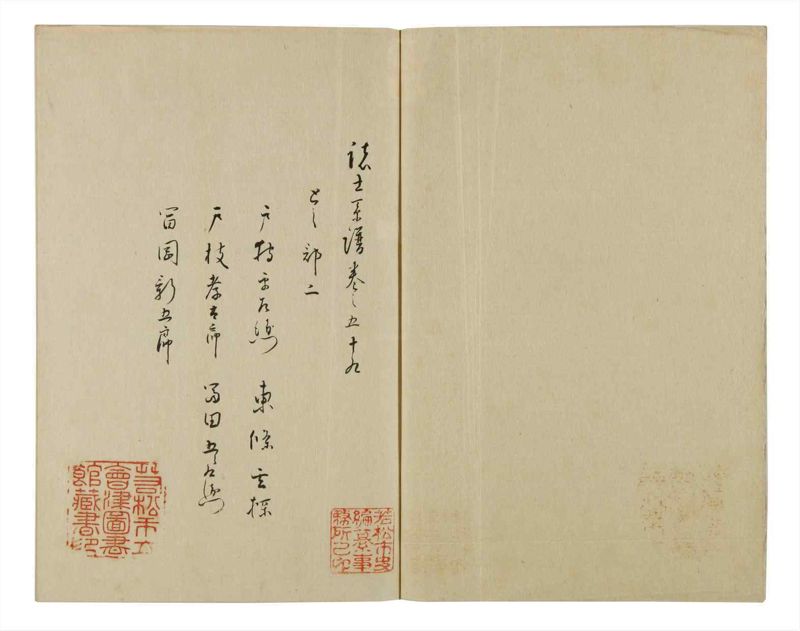 諸士系譜巻之五十九
と之部二
戸枝平左衛門　東條玄探
戸枝孝吉郎　冨田五左衛門
冨岡新五郎
若松市立
會津圖書
館藏書印
若松市史
編纂事
務所之印